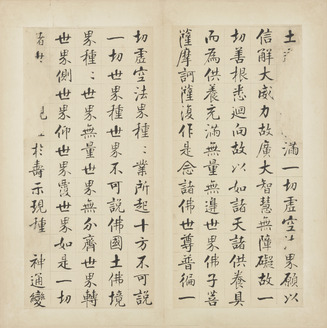 土滿一切虛空界願以
信解大威力故廣大智慧無障礙故一
切善根悉迴向故以如諸天諸供養具
而為供養充滿無量無邊世界佛子菩
薩摩訶薩復作是念諸佛世尊普徧一
切虛空法界種〻業所起十方不可說
一切世界種世界不可說佛國土佛境
界種〻世界無量世界無分齊世界轉
世界側世界仰世界覆世界如是一切
於壽示現種神通變